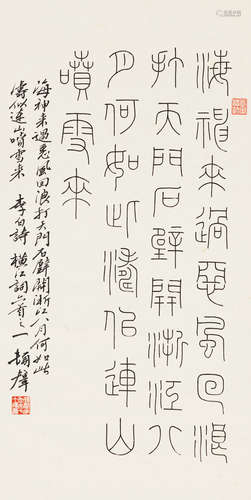 海神来過惡風回浪
打天門石壁開浙江八
月何如此濤佀連山
噴雪来
海神来過惡風回浪打天門石壁開浙江八月何如此
濤似連山噴雪来 李白詩 橫江詞六首之一